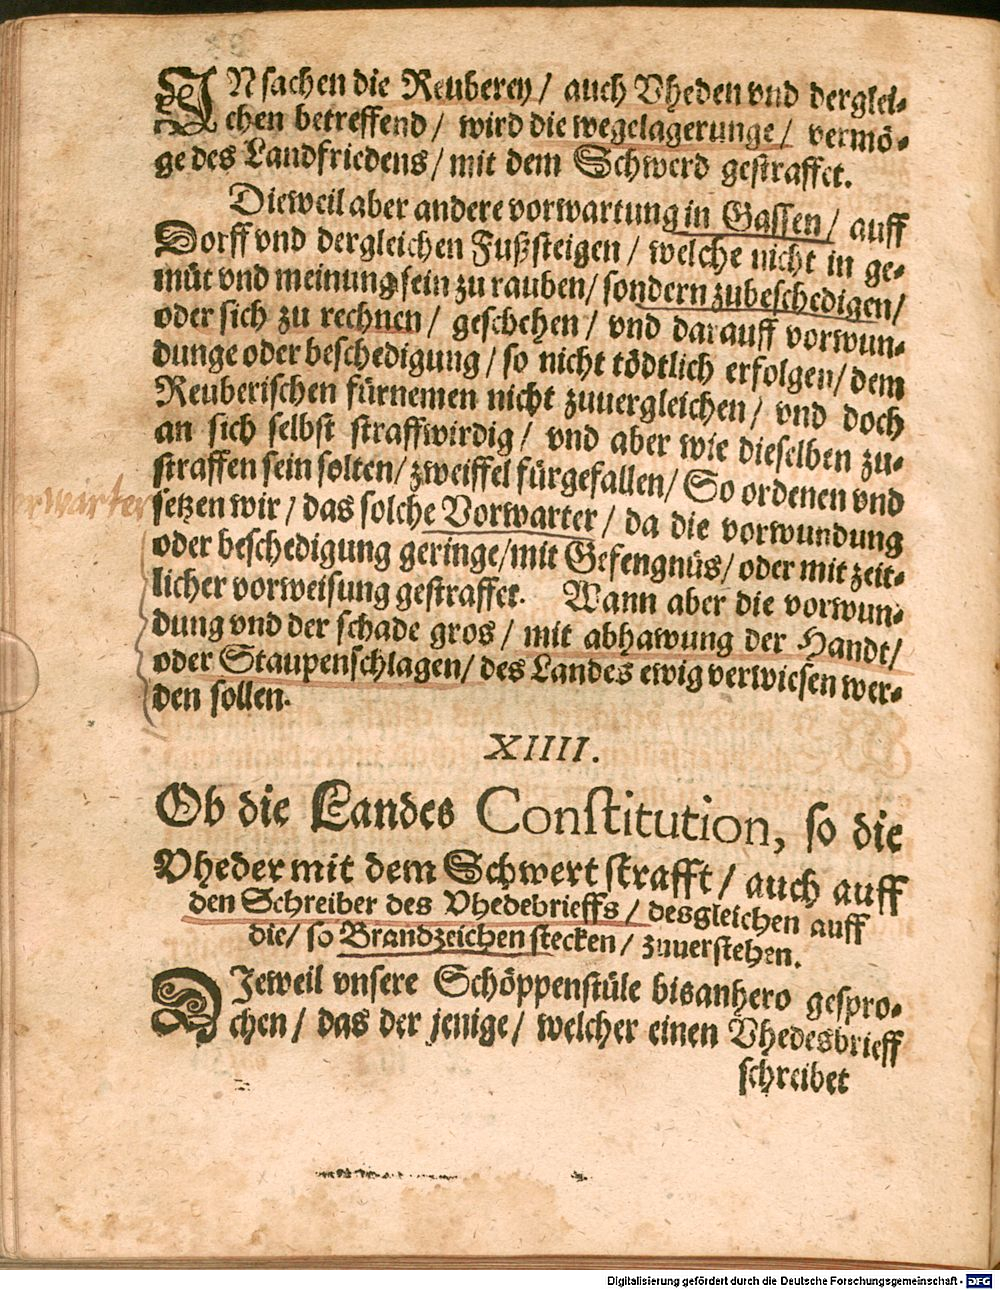 INsachen die Reuberey / auch Vheden vnd derglei-
chen betreffend / wird die wegelagerunge / vermö-
ge des Landfriedens / mit dem Schwerd gestraffet.
Dieweil aber andere vorwartung in Gassen / auff
Dorff vnd dergleichen Fußsteigen / welche nicht in ge-
müt vnd meinung sein zu rauben / sondern zubeschedigen /
oder sich zu rechnen / geschehen / vnd darauff vorwun-
dunge oder beschedigung / so nicht tödtlich erfolgen / dem
Reuberischen fürnemen nicht zuuergleichen / vnd doch
an sich selbst straffwirdig / vnd aber wie dieselben zu-
straffen sein solten / zweiffel fürgefallen / So ordenen vnd
setzen wir / das solche Vorwarter / da die vorwundung
oder beschedigung geringe / mit Gefengnüs / oder mit zeit-
licher vorweisung gestraffet. Wann aber die vorwun-
dung vnd der schade gros / mit abhawung der Handt /
oder Staupenschlagen / des Landes ewig verwiesen wer-
den sollen.
XIIII.
Ob die Landes Constitution, so die
Vheder mit dem Schwert strafft / auch auff
den Schreiber des Vhedebrieffs / desgleichen auff
die / so Brandzeichen stecken / zuuerstehen.
DJeweil vnsere Schöppenstüle bisanhero gespro-
chen / das der jenige / welcher einen Vhedesbrieff
schreibet
Digitalisierung gefördert durch die Deutsche Forschungsgemeinschaft - DFG